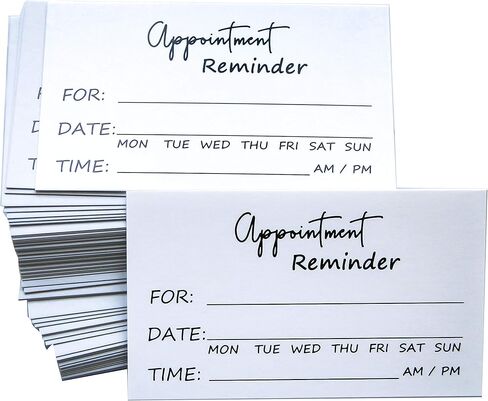 Appointment
Reminder
FOR:
DATE:
MON TUE WED THU FRI SAT SUN
TIME: AM / PM
Appointment
Reminder
FOR:
DATE:
MON TUE WED THU FRI SAT SUN
TIME: AM / PM